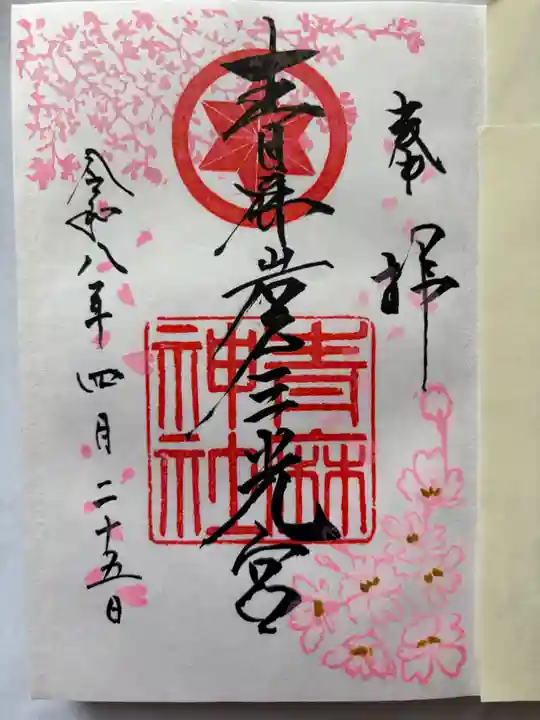 奉拝
青麻岩戸三光宮
青麻
神社
令和八年四月二十五日